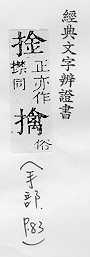 經典文字辨證書
捦正亦作
㩒同
擒俗
(手部.P.83)